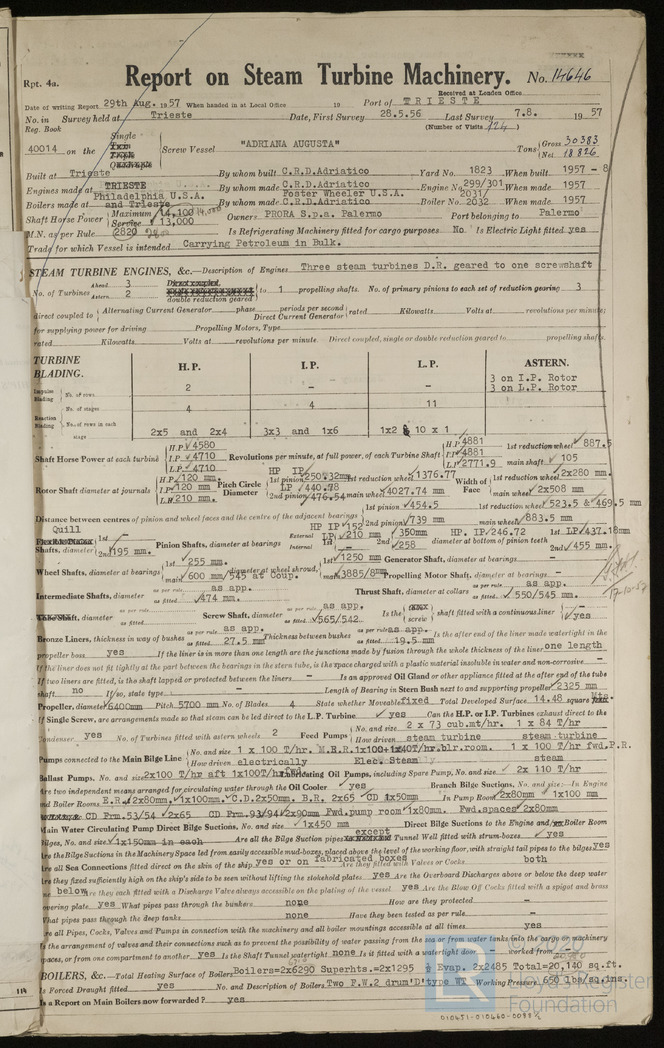 Rpt. 4a.
Report on Steam Turbine Machinery. No. 14646
Received at London Office
Date of writing Report 29th Aug. 1957 When handed in at Local Office 19 Port of TRIESTE
No. in Survey held at Trieste Date, First Survey 28.5.56 Last Survey 7.8. 1957
Reg. Book (Number of Visits 124)
Single
40014 on the Screw Vessel "ADRIANA AUGUSTA" Tons Gross 30383 Net 18826
Built at Trieste By whom built C.R.D.Adriatico Yard No. 1823 When built 1957 - 8
Engines made at TRIESTE By whom made C.R.D.Adriatico Engine No. 299/301 When made 1957
Philadelphia U.S.A. Foster Wheeler U.S.A. 2031/
Boilers made at and Trieste By whom made C.R.D.Adriatico Boiler No. 2032 When made 1957
Shaft Horse Power Maximum 14,100 Service 13,000 Owners PRORA S.p.a. Palermo Port belonging to Palermo
M.N. as per Rule 2820 Is Refrigerating Machinery fitted for cargo purposes No Is Electric Light fitted yes
Trade for which Vessel is intended Carrying Petroleum in Bulk.
STEAM TURBINE ENGINES, &c.—Description of Engines Three steam turbines D.R. geared to one screwshaft
No. of Turbines Ahead 3 Astern 2 double reduction geared to 1 propelling shafts. No. of primary pinions to each set of reduction gearing 3
direct coupled to Alternating Current Generator phase periods per second Direct Current Generator rated Kilowatts Volts at revolutions per minute;
for supplying power for driving Propelling Motors, Type
rated Kilowatts Volts at revolutions per minute. Direct coupled, single or double reduction geared to propelling shafts.
TURBINE BLADING. H.P. I.P. L.P. ASTERN.
3 on I.P. Rotor
3 on L.P. Rotor
Impulse Blading No. of rows 2 – –
Reaction Blading No. of stages 4 4 11
No. of rows in each stage 2x5 and 2x4 3x3 and 1x6 1x2 & 10 x 1
Shaft Horse Power at each turbine H.P. 4580 I.P. 4710 L.P. 4710 Revolutions per minute, at full power, of each Turbine Shaft H.P. 4881 I.P. 4881 L.P. 2771.9 1st reduction wheel 887.5 main shaft 105
Rotor Shaft diameter at journals H.P. 120 mm. I.P. 120 mm L.P. 210 mm. Pitch Circle Diameter HP IP 1st pinion 250.32mm LP 440.78 2nd pinion 476.54 1st reduction wheel 1376.77 main wheel 4027.74 mm Width of Face 1st reduction wheel 2x280 mm. main wheel 2x508 mm
Distance between centres of pinion and wheel faces and the centre of the adjacent bearings 1st pinion 454.5 2nd pinion 739 mm 1st reduction wheel 523.5 & 469.5 mm main wheel 883.5 mm
Quill
Shafts, diameter 1st – 2nd 195 mm. Pinion Shafts, diameter at bearings External HP IP 152 LP 210 mm 350mm Internal 1st – 2nd 258 diameter at bottom of pinion teeth HP. IP/246.72 1st LP 437.18mm 2nd 455 mm.
Wheel Shafts, diameter at bearings 1st 255 mm. main 600 mm/545 at Coup. diameter at wheel shroud, 1st 1250 mm main 3885/8 Generator Shaft, diameter at bearings – Propelling Motor Shaft, diameter at bearings –
Intermediate Shafts, diameter as per rule as app. as fitted 474 mm. Thrust Shaft, diameter at collars as per rule as app. as fitted 550/545 mm.
Tube Shaft, diameter as per rule – as fitted – Screw Shaft, diameter as per rule as app. as fitted 565/542 Is the screw shaft fitted with a continuous liner yes
Bronze Liners, thickness in way of bushes as per rule as app. as fitted 27.5 mm Thickness between bushes as per rule as app. as fitted 19.5 mm Is the after end of the liner made watertight in the
propeller boss yes If the liner is in more than one length are the junctions made by fusion through the whole thickness of the liner one length
If the liner does not fit tightly at the part between the bearings in the stern tube, is the space charged with a plastic material insoluble in water and non-corrosive –
If two liners are fitted, is the shaft lapped or protected between the liners – Is an approved Oil Gland or other appliance fitted at the after end of the tube
shaft no If so, state type – Length of Bearing in Stern Bush next to and supporting propeller 2325 mm
Propeller, diameter 6400mm Pitch 5700 mm No. of Blades 4 State whether Moveable fixed Total Developed Surface 14.48 square Mts
If Single Screw, are arrangements made so that steam can be led direct to the L.P. Turbine yes Can the H.P. or I.P. Turbines exhaust direct to the
Condenser yes No. of Turbines fitted with astern wheels 2 Feed Pumps No. and size 2 x 73 cub.mt/hr. 1 x 84 T/hr How driven steam turbine steam turbine
Pumps connected to the Main Bilge Line No. and size 1 x 100 T/hr. M.E.R. 1x100+1x40T/hr.blr.room. 1 x 100 T/hr fwd.P.R. How driven electrically Elec. Steam steam
Ballast Pumps, No. and size 2x100 T/hr aft 1x100T/hr fwd Lubricating Oil Pumps, including Spare Pump, No. and size 2x 110 T/hr
Are two independent means arranged for circulating water through the Oil Cooler yes Branch Bilge Suctions, No. and size:—In Engine
and Boiler Rooms E.R. 2x80mm. 1x100mm. C.D.2x50mm. B.R. 2x65 CD 1x50mm In Pump Room 2x80mm 1x100 mm
CD Frm.53/54 2x65 CD Frm.93/94 2x90mm Fwd.pump room 1x80mm. Fwd.spaces 2x80mm
Main Water Circulating Pump Direct Bilge Suctions, No. and size 1x450 mm Direct Bilge Suctions to the Engine and/or Boiler Room
Bilges, No. and size 1x150mm in each Are all the Bilge Suction pipes except Tunnel Well fitted with strum-boxes yes
Are the Bilge Suctions in the Machinery Space led from easily accessible mud-boxes, placed above the level of the working floor, with straight tail pipes to the bilges yes
Are all Sea Connections fitted direct on the skin of the ship yes or on fabricated boxes Are they fitted with Valves or Cocks both
Are they fixed sufficiently high on the ship's side to be seen without lifting the stokehold plates yes Are the Overboard Discharges above or below the deep water
line below Are they each fitted with a Discharge Valve always accessible on the plating of the vessel yes Are the Blow Off Cocks fitted with a spigot and brass
covering plate yes What pipes pass through the bunkers none How are they protected –
What pipes pass through the deep tanks none Have they been tested as per rule –
Are all Pipes, Cocks, Valves and Pumps in connection with the machinery and all boiler mountings accessible at all times yes
Is the arrangement of valves and their connections such as to prevent the possibility of water passing from the sea or from water tanks into the cargo or machinery
spaces, or from one compartment to another yes Is the Shaft Tunnel watertight none Is it fitted with a watertight door worked from –
BOILERS, &c.—Total Heating Surface of Boilers Boilers=2x6290 Superhts.=2x1295 ½ Evap. 2x2485 Total=20,140 sq.ft.
Is Forced Draught fitted yes No. and Description of Boilers Two F.W.2 drum'D'type WT Working Pressure 650 lbs/sq.ins.
Is a Report on Main Boilers now forwarded? yes
114
© 2020
LR
Lloyd's Register
Foundation
010451-010460-0088½